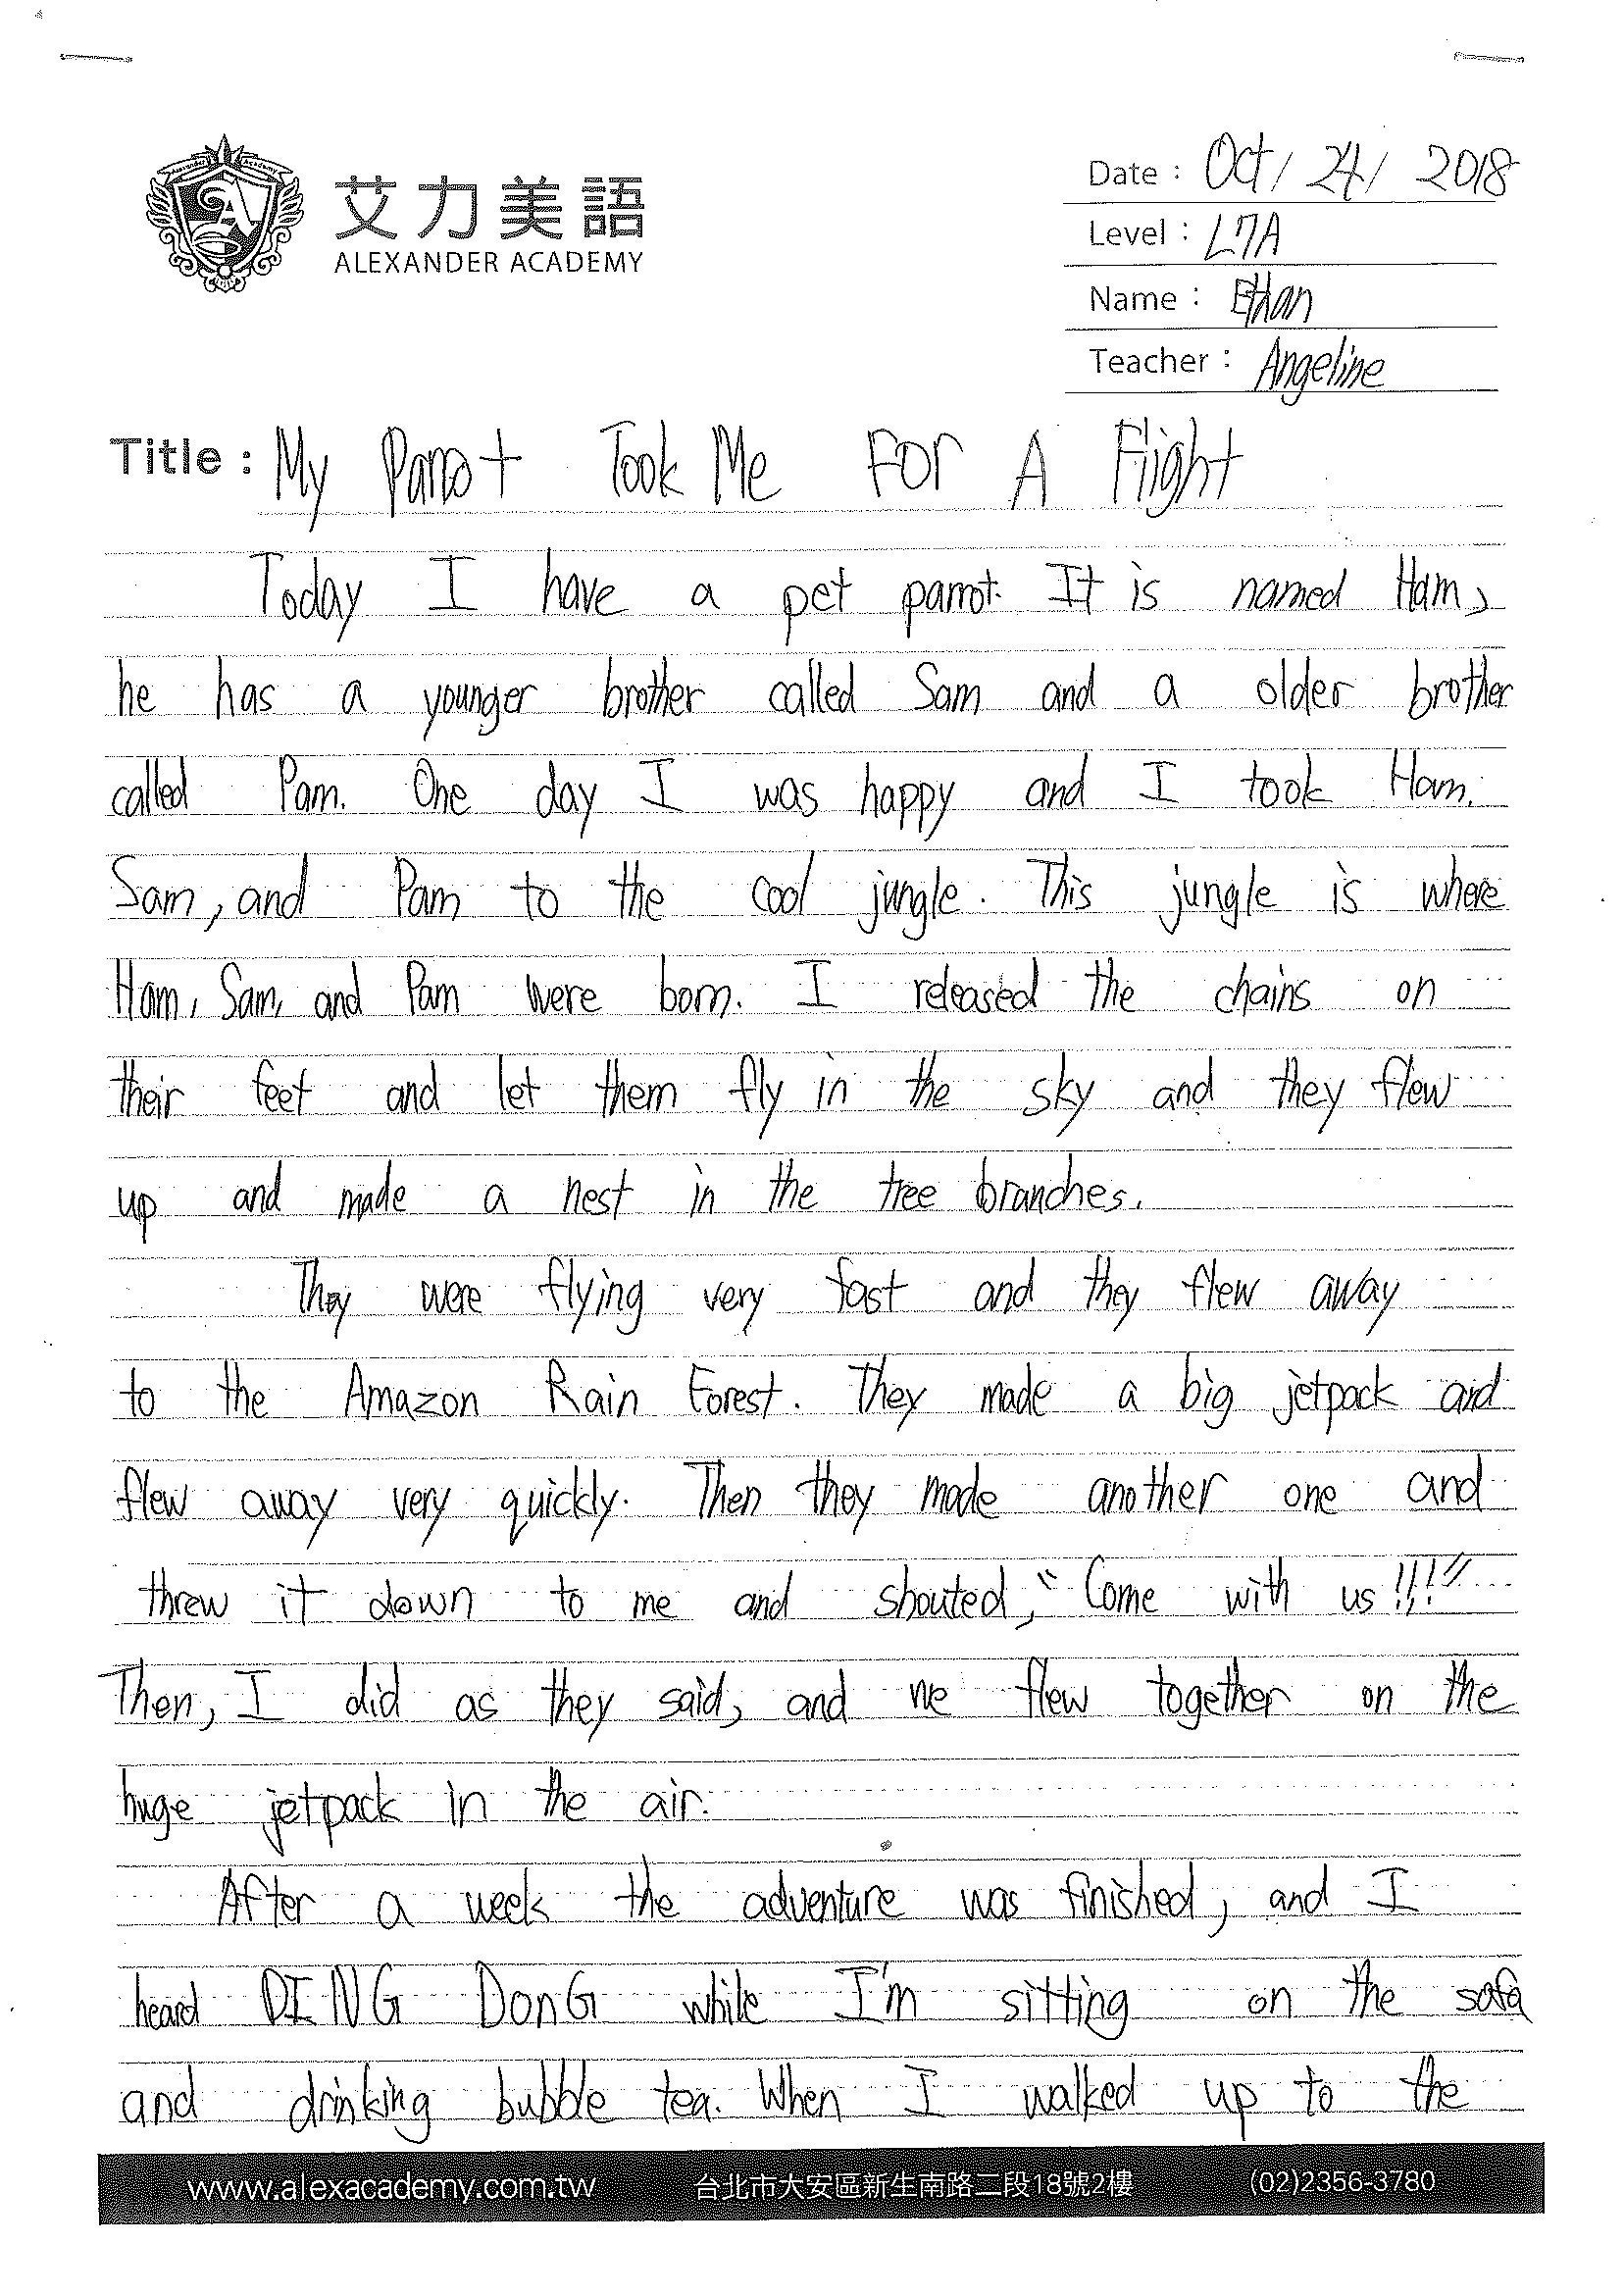 艾力美語
ALEXANDER ACADEMY
Date : Oct / 24 / 2018
Level : L7A
Name : Ethan
Teacher : Angeline
Title : My Parrot Took Me For A Flight
Today I have a pet parrot. It is named Ham,
he has a younger brother called Sam and a older brother
called Pam. One day I was happy and I took Ham.
Sam, and Pam to the cool jungle. This jungle is where
Ham, Sam, and Pam were born. I released the chains on
their feet and let them fly in the sky and they flew
up and made a nest in the tree branches.
They were flying very fast and they flew away
to the Amazon Rain Forest. They made a big jetpack and
flew away very quickly. Then they made another one and
threw it down to me and shouted, " Come with us !!!"
Then, I did as they said, and we flew together on the
huge jetpack in the air.
After a week the adventure was finished, and I
heard DING DonG while I'm sitting on the sofa
and drinking bubble tea. When I walked up to the
www.alexacademy.com.tw 台北市大安區新生南路二段18號2樓 (02)2356-3780